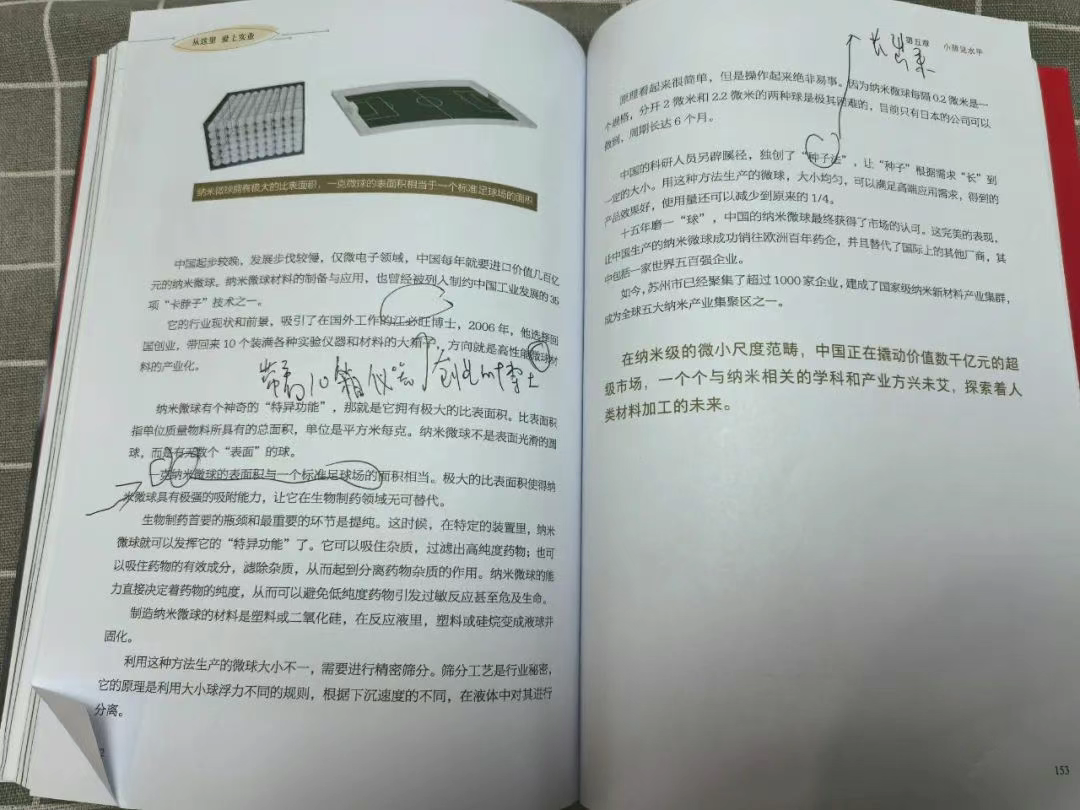 从这里 爱上实业
纳米微球拥有极大的比表面积，一克微球的表面积相当于一个标准足球场的面积
中国起步较晚，发展步伐较慢，仅微电子领域，中国每年就要进口价值几百亿
元的纳米微球。纳米微球材料的制备与应用，也曾经被列入制约中国工业发展的35
项“卡脖子”技术之一。
它的行业现状和前景，吸引了在国外工作的江必旺博士，2006 年，他选择回
国创业，带回来 10 个装满各种实验仪器和材料的大箱子，方向就是高性能微球材
料的产业化。
带着10箱仪器 创业的博士
纳米微球有个神奇的“特异功能”，那就是它拥有极大的比表面积。比表面积
指单位质量物料所具有的总面积，单位是平方米每克。纳米微球不是表面光滑的圆
球，而是有无数个“表面”的球。
一克纳米微球的表面积与一个标准足球场的面积相当。极大的比表面积使得纳
米微球具有极强的吸附能力，让它在生物制药领域无可替代。
生物制药首要的瓶颈和最重要的环节是提纯。这时候，在特定的装置里，纳米
微球就可以发挥它的“特异功能”了。它可以吸住杂质，过滤出高纯度药物；也可
以吸住药物的有效成分，滤除杂质，从而起到分离药物杂质的作用。纳米微球的能
力直接决定着药物的纯度，从而可以避免低纯度药物引发过敏反应甚至危及生命。
制造纳米微球的材料是塑料或二氧化硅，在反应液里，塑料或硅烷变成液球并
固化。
利用这种方法生产的微球大小不一，需要进行精密筛分。筛分工艺是行业秘密，
它的原理是利用大小球浮力不同的规则，根据下沉速度的不同，在液体中对其进行
分离。
2
第五章 小微见水平
长出来
原理看起来很简单，但是操作起来绝非易事。因为纳米微球每隔 0.2 微米是一
个规格，分开 2 微米和 2.2 微米的两种球是极其困难的，目前只有日本的公司可以
做到，周期长达 6 个月。
中国的科研人员另辟蹊径，独创了“种子法”，让“种子”根据需求“长”到
一定的大小。用这种方法生产的微球，大小均匀，可以满足高端应用需求，得到的
产品效果好，使用量还可以减少到原来的 1/4。
十五年磨一“球”，中国的纳米微球最终获得了市场的认可。这完美的表现，
让中国生产的纳米微球成功销往欧洲百年药企，并且替代了国际上的其他厂商，其
中包括一家世界五百强企业。
如今，苏州市已经聚集了超过 1000 家企业，建成了国家级纳米新材料产业集群，
成为全球五大纳米产业集聚区之一。
在纳米级的微小尺度范畴，中国正在撬动价值数千亿元的超
级市场，一个个与纳米相关的学科和产业方兴未艾，探索着人
类材料加工的未来。
153